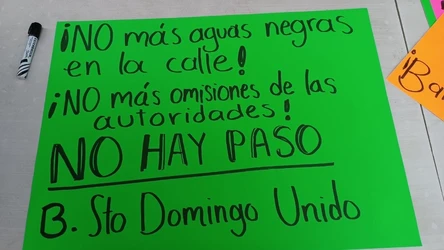 ¡NO más aguas negras
en la calle!
¡NO más omisiones de las
autoridades!
NO HAY PASO
B. Sto Domingo Unido
¡Ba